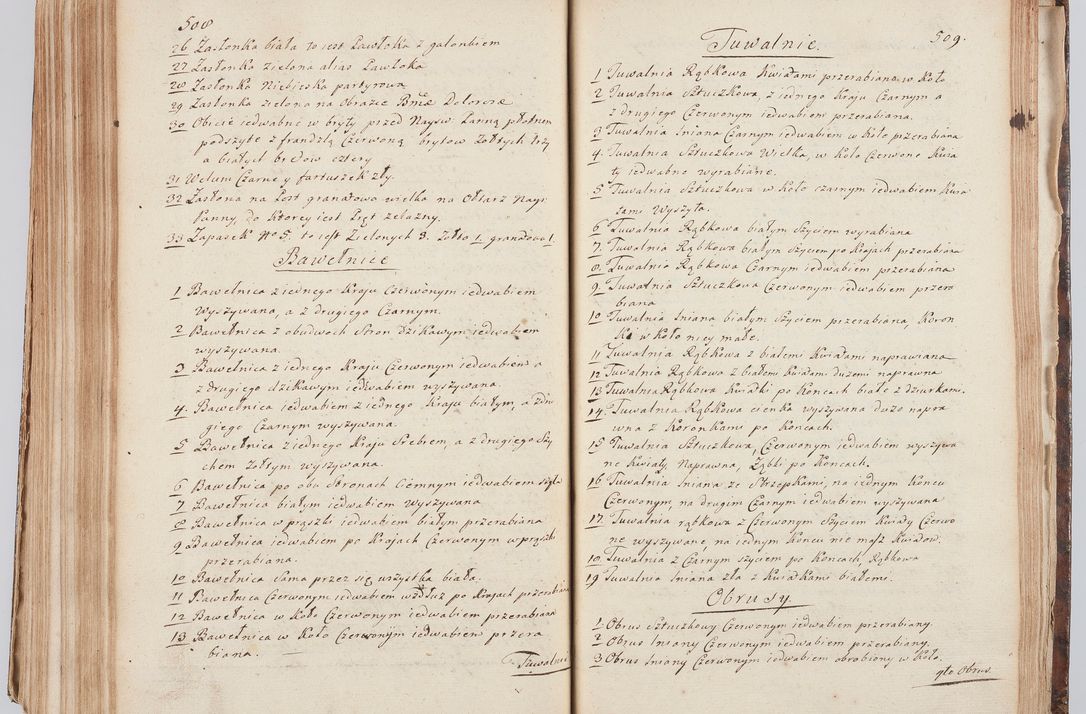 508
26 Zasłonka biała to iest Pawłoka z galonkiem
27 Zasłonka zielona alias Pawłoka
28 Zasłonka Niebieska partyrowa
29 Zasłonka zielona na Obrazie Bnæ Dolorosæ
30 Obicie iedwabne w bryty przed Nayśw: Panną płotnem
podszyte z frandzlą Czerwoną brytow Zołtych trzy
a białych bretow cztery
31 Welum Czarne y fartuszek zły.
32 Zasłona na Post granatowa wielka na Ołtarz Nays:
Panny, do Ktorey iest Pręt zelazny.
33 Zapasek No 5. to iest Zielonych 3. Zołta 1. granatowa 1.
Bawełnice
1 Bawełnica z iednego Kraju Czerwonym iedwabiem
Wyszywana, a z drugiego Czarnym.
2 Bawełnica z obudwoch Stron Dzikawym iedwabiem
wyszywana.
3 Bawełnica z iednego Kraju Czerwonym iedwabiem a
z drugiego dzikawym iedwabiem wyszywana.
4. Bawełnica iedwabiem z iednego Kraju białym, a z dru
giego Czarnym wyszywana.
5 Bawełnica z iednego Kraju Srebrem, a z drugiego Szy
chem Zołtym wyszywana.
6 Bawełnica po obu Stronach Ciemnym iedwabiem szyta
7 Bawełnica białym iedwabiem Wyszywana
8 Bawełnica w prąszki iedwabiem białym przerabiana
9 Bawełnica iedwabiem po Krajach Czerwonym w prąszki
przerabiana.
10 Bawełnica Sama przez się wszystka biała.
11 Bawełnica Czerwonym iedwabiem wzdłuz po Krajach przerabiana
12 Bawełnica w Koło Czerwonym iedwabiem przerabiana
13 Bawełnica w Koło Czerwonym iedwabiem przera
biana.
Tuwalnie
509.
Tuwalnie.
1 Tuwalnia Rąbkowa Kwiatami przerabiana w Koło
2 Tuwalnia Sztuczkowa, z iednego Kraju Czarnym a
z drugiego Czerwonym iedwabiem przerabiana.
3 Tuwalnia lniana Czarnym iedwabiem w Koło przerabiana
4. Tuwalnia Sztuczkowa Wielka, w Koło Czerwone Kwia
ty iedwabne wyrabiane.
5 Tuwalnia Sztuczkowa w Koło czarnym iedwabiem Kwia
tami Wyszyta.
6 Tuwalnia Rąbkowa białym Szyciem wyrabiana
7. Tuwalnia Rąbkowa białym szyciem po Krajach przerabiana
8. Tuwalnia Rąbkowa Czarnym iedwabiem przerabiana
9. Tuwalnia Sztuczkowa Czerwonym iedwabiem przera
biana
10 Tuwalnia lniana białym Szyciem przerabiana, Koron
Ki w Koło niey małe.
11 Tuwalnia Rąbkowa z białemi Kwiatami naprawiana
12 Tuwalnia Rąbkowa z białemi Kwiatami duzemi naprawna
13 Tuwalnia Rąbkowa Kwiatki po Koncach białe z dziurkami.
14. Tuwalnia Rąbkowa cienka wyszywana duzo napra
wna z Koronkami po Koncach.
15 Tuwalnia Sztuczkowa, Czerwonym iedwabiem wyszywa
ne Kwiaty, Naprawna, Ząbki po Koncach.
16 Tuwalnia lniana ze Strzepkami, na iednym Koncu
Czerwonym, na drugim Czarnym iedwabiem wyszywana
17. Tuwalnia rąbkowa z Czerwonym Szyciem Kwiaty Czerwo
ne wyszywane, na iednym Koncu nie masz Kwiatow.
18. Tuwalnia z Czarnym szyciem po Koncach, Rąbkowa
19 Tuwalnia lniana zła z Kwiatkami białemi.
Obrusy.
1 Obrus Sztuczkowy Czerwonym iedwabiem przerabiany.
2 Obrus lniany Czerwonym iedwabiem przerabiany.
3 Obrus lniany Czerwonym iedwabiem obrobiony w Koło.
4to Obrus